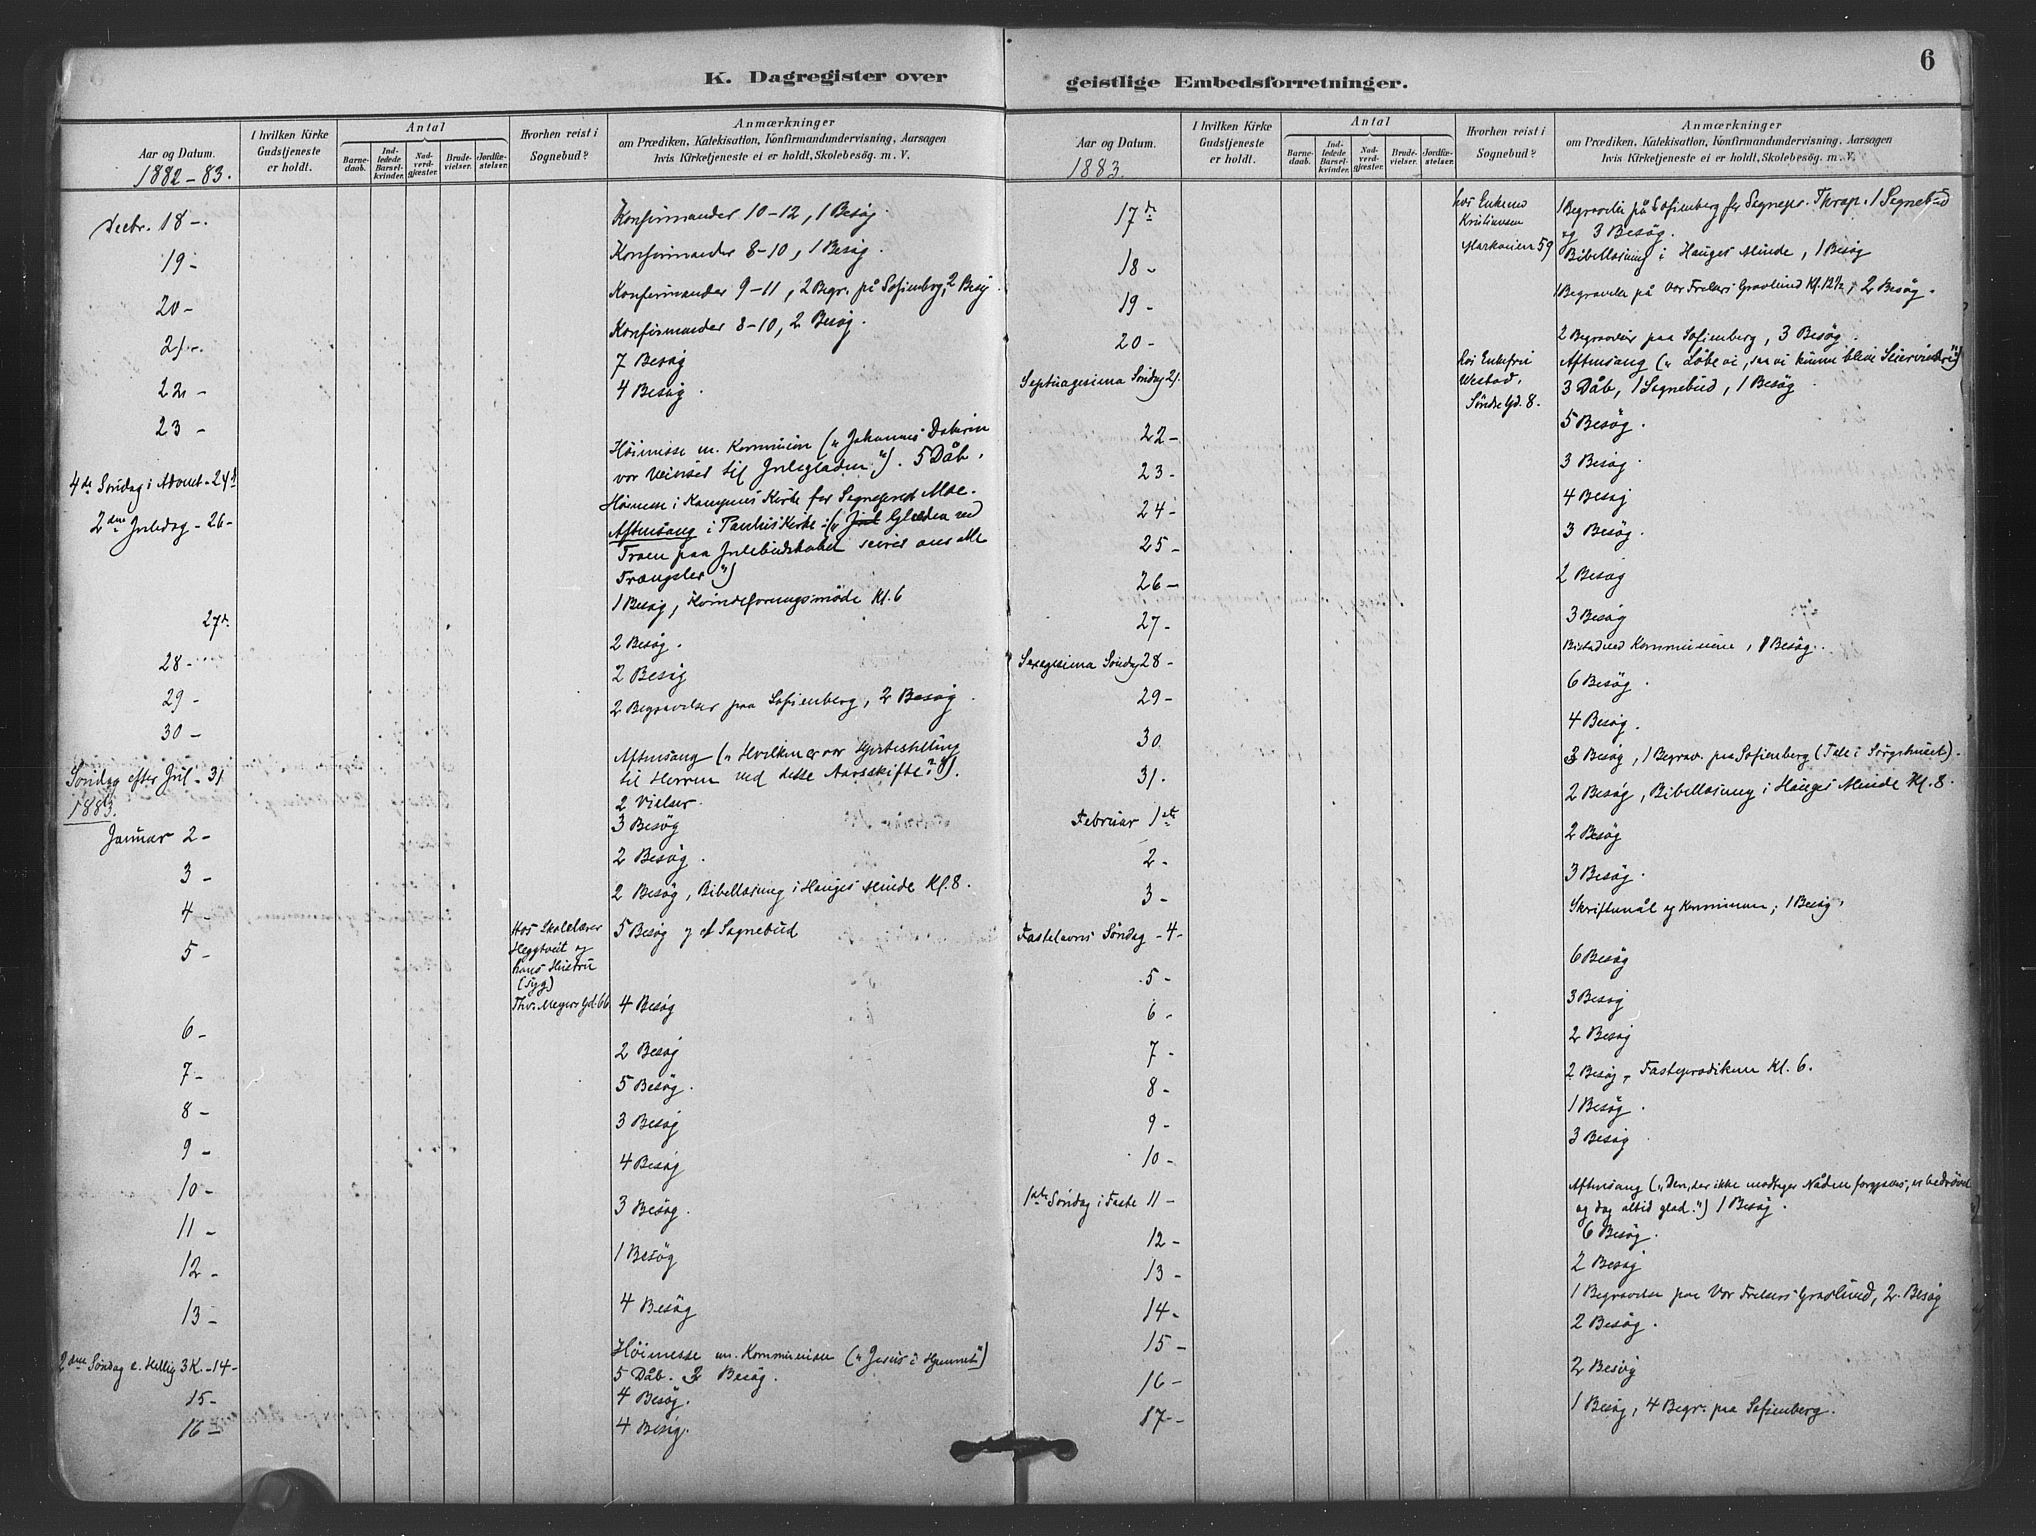 K. Dagregister over
Aar og Datum.
1882-83.
I hvilken Kirke
Gudstjeneste
er holdt.
Antal
Barne-
daab.
Ind-
ledede
Barsel-
kvinder.
Nad-
verd-
gjæster.
Brude-
vielser.
Jordfæ-
stelser.
Hvorhen reist i
Sognebud?
Anmærkninger
om Prædiken, Katekisation, Konfirmandundervisning, Aarsagen
hvis Kirketjeneste ei er holdt, Skolebesøg. m. V.
Decbr. 18 -. Konfirmander 10-12, 1 Besøg.
19 - Konfirmander 8-10, 1 Besøg.
20 - Konfirmander 9-11, 2 Begr. på Sofienberg, 2 Besøg.
21 -. Konfirmander 8-10, 2 Besøg.
22 - 7 Besøg
23 - 4 Besøg.
4de Søndag i Advent - 24 Høimesse m. Kommunion („Johannes Døberen
vor Veiviser til Juleglæden“). 5 Dåb.
2den Juledag - 26 - Høimesse i Kampens Kirke for Sognepræst Moe.
Aftensang i Paulus Kirke - („Glæden ved
Troen paa Julebudskabet seirer over alle
Trængsler“)
27de 1 Besøg, Kvindeforeningsmøde Kl. 6
28 - 2 Besøg.
29 - 2 Besøg
30 - 2 Begravelser paa Sofienberg, 2 Besøg.
Søndag efter Jul - 31 Aftensang („Hvilken er vor Hjertestilling
til Herren ved dette Aarsskifte?“).
2 Vielser.
1883.
Januar 2 - 3 Besøg
3 - 2 Besøg.
4 - 2 Besøg, Bibellæsning i Hauges Minde Kl. 8.
5 - Hos Skolelærer
Heggtveit og
hans Hustru
(syg)
Thv. Meyers Gd. 66
5 Besøg og et Sognebud
6 - 4 Besøg
7 - 2 Besøg
8 - 5 Besøg.
9 - 3 Besøg
10 - 4 Besøg
11 - 3 Besøg.
12 - 1 Besøg
13 - 4 Besøg
2den Søndag e. Hellig 3 K. - 14 - Høimesse m. Kommunion („Jesus i Hjemmet“)
5 Dåb. 2 Besøg.
15 - 4 Besøg.
16 - 4 Besøg.
geistlige Embedsforretninger.
6
Aar og Datum.
1883.
I hvilken Kirke
Gudstjeneste
er holdt.
Antal
Barne-
daab.
Ind-
ledede
Barsel-
kvinder.
Nad-
verd-
gjæster.
Brude-
vielser.
Jordfæ-
stelser.
Hvorhen reist i
Sognebud?
Anmærkninger
om Prædiken, Katekisation, Konfirmandundervisning, Aarsagen
hvis Kirketjeneste ei er holdt, Skolebesøg. m. V.
17de hos Enkemd
Kristiansen
Markveien 59
1 Begravelse på Sofienberg for Sognepr. Thrap. 1 Sognebud
og 3 Besøg.
18 - Bibellæsning i Hauges Minde, 1 Besøg
19 - 1 Begravelse på Vor Frelsers Gravlund Kl. 12½, 2 Besøg.
20 - 2 Begravelser paa Sofienberg, 3 Besøg.
Septuagesima Søndag 21. hos Enkefru
Westad,
Søndre Gd. 8.
Aftensang („Løbe vi, saa vi kunne blive Seiervindere“)
3 Dåb, 1 Sognebud, 1 Besøg.
22 - 5 Besøg.
23 - 3 Besøg.
24 - 4 Besøg
25 - 3 Besøg.
26 - 2 Besøg
27 - 3 Besøg
Sexagesima Søndag 28 - Bistod ved Kommunion, 1 Besøg.
29 - 6 Besøg.
30 4 Besøg.
31. 3 Besøg, 1 Begrav. paa Sofienberg (Tale i Sørgehuset).
Februar 1ste 2 Besøg, Bibellæsning i Hauges Minde Kl. 8.
2 - 2 Besøg
3 - 3 Besøg.
Fastelavns Søndag - 4 - Skriftemål og Kommunion, 1 Besøg.
5 - 6 Besøg
6 - 3 Besøg
7 - 2 Besøg
8 - 2 Besøg, Fasteprædiken Kl. 6.
9 - 1 Besøg.
10 - 3 Besøg
1ste Søndag i Faste 11 - Aftensang („Den, der ikke modtager Nåden forgjæves, er bedrøvet
og dog altid glad.“) 1 Besøg.
12 - 6 Besøg.
13 - 2 Besøg
14 - 1 Begravelse paa Vor Frelsers Gravlund, 2 Besøg
15 - 2 Besøg.
16 - 2 Besøg
17 - 1 Besøg, 4 Begr. paa Sofienberg.